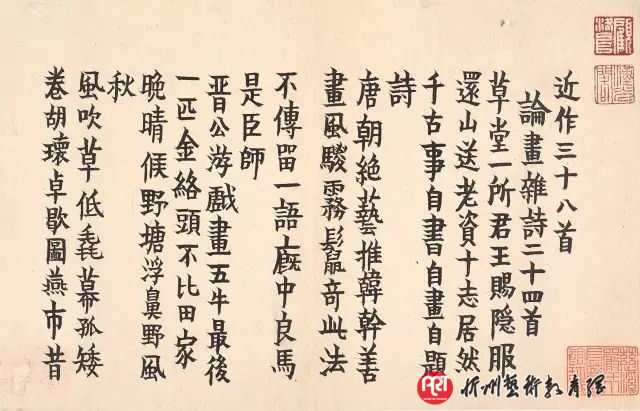 近作三十八首
論畫雜詩二十四首
草堂一所君王賜隐服
還山送老資十志居然
千古事自書自畫自題
詩
唐朝絕藝推韓幹善
畫風騣霧鬛奇此法
不傳留一語廐中良馬
是臣師
晋公游戲畫五牛最後
一匹金絡頭不比田家
晚晴候野塘浮鼻野風
秋
風吹草低毳幕孤矮
卷胡瓌卓歇圖燕市昔
顧洛阜
ART
忻州藝術教育網